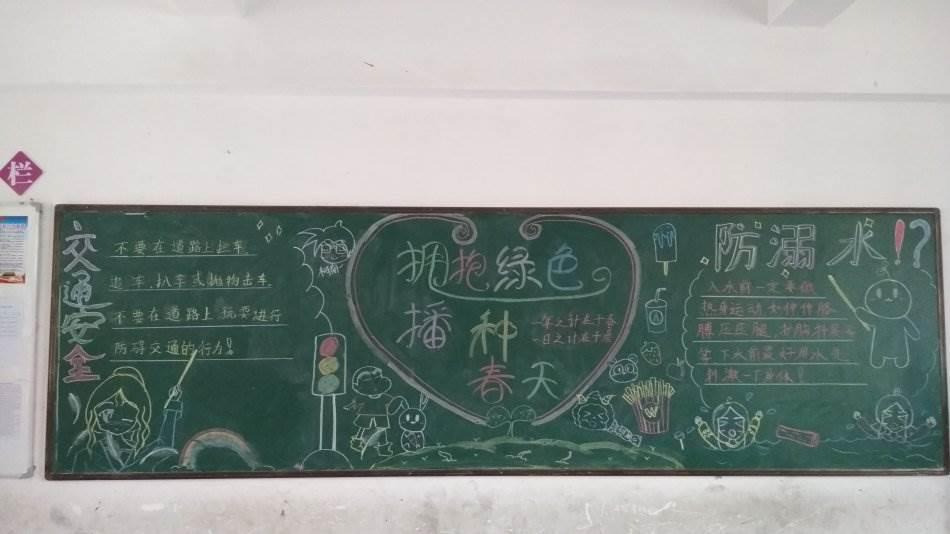 栏
交通安全
不要在道路上拦车
追车、扒车或抛物击车
不要在道路上玩耍进行
防碍交通的行为!
拥抱绿色
播种
春天
一年之计在于春
一日之计在于晨
防溺水!?
入水前一定要做
热身运动
膊压压腿
下水前最好用水先
刺激一下